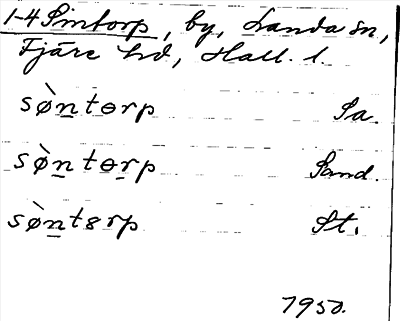 1-4 Sintorp, by, Landa sn,
Fjäre hd, Hall. l.
sø̀n̲tɵrp Sa.
sø̀n̲tɵr̲p Sand.
sø̀n̲tɞrp St.
1950.